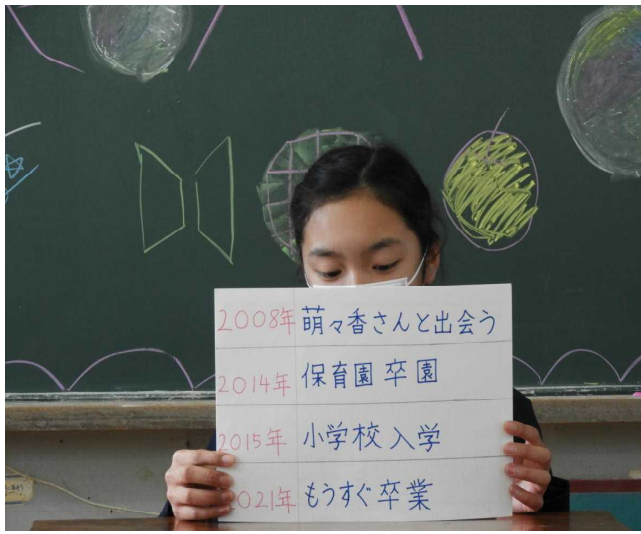 2008年 萌々香さんと出会う
2014年 保育園卒園
2015年 小学校入学
2021年 もうすぐ卒業